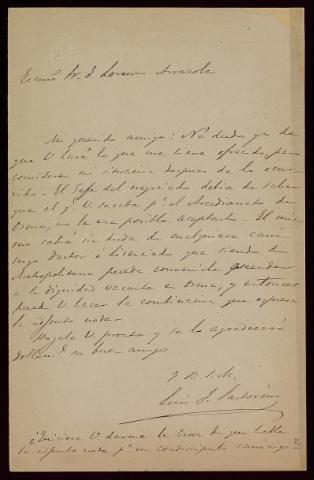 Excmo Sr. D. Lorenzo Arrazola
Mi querido amigo: No dudo yo de
que V. hará lo que me tiene ofrecido, pero
considere mi situacion despues de lo ocur-
rido - El Gefe del negociado debia de saber
que el q. V. inserta pa. el Arcedianato de
Osma, no le era posible aceptarlo - El mis-
mo sabrá sin duda de cualquiera canó-
nigo Doctor ó Licenciado que siendo de
Metropolitana pueda convenirle ascender
á la dignidad vacante en Osma, y entonces
puede V. hacer la combinacion que expresa
la adjunta nota -
Hagalo V. pronto y se lo agradecerá
su buen amigo
Q. B. S. M.
Luis J. Sartorius
¿Quisiera V. darme la cruz de que habla
la adjunta nota pa. un condiscipulo canónigo?